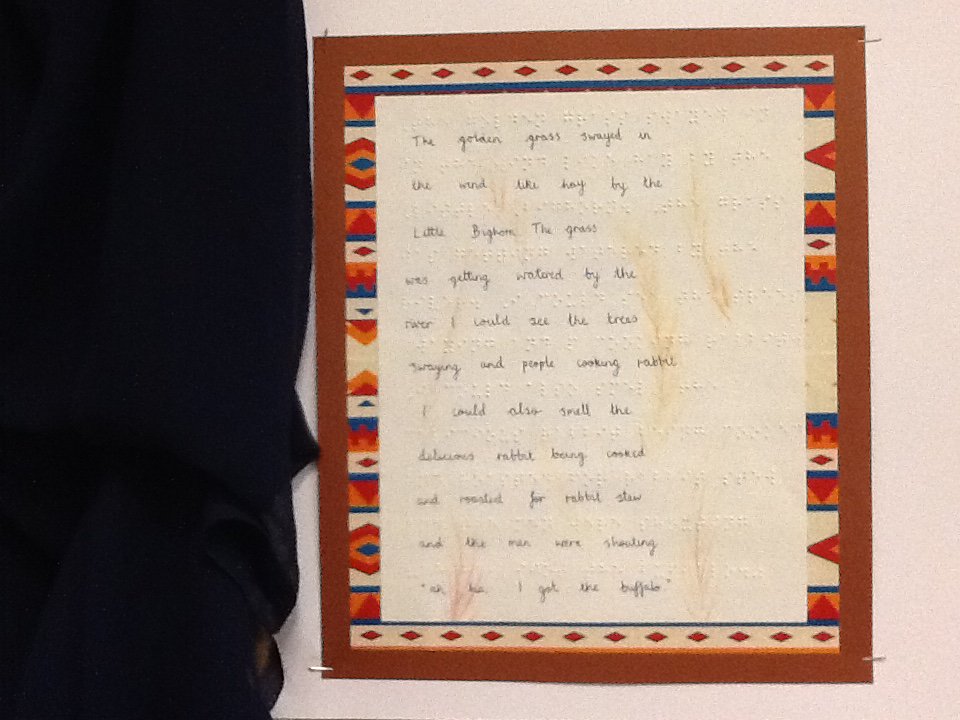 The golden grass swayed in
the wind like hay by the
Little Bighorn The grass
was getting watered by the
river I could see the trees
swaying and people cooking rabbit
I could also smell the
delicious rabbit being cooked
and roasted for rabbit stew
and the men were shouting
"ah ha I got the buffalo"